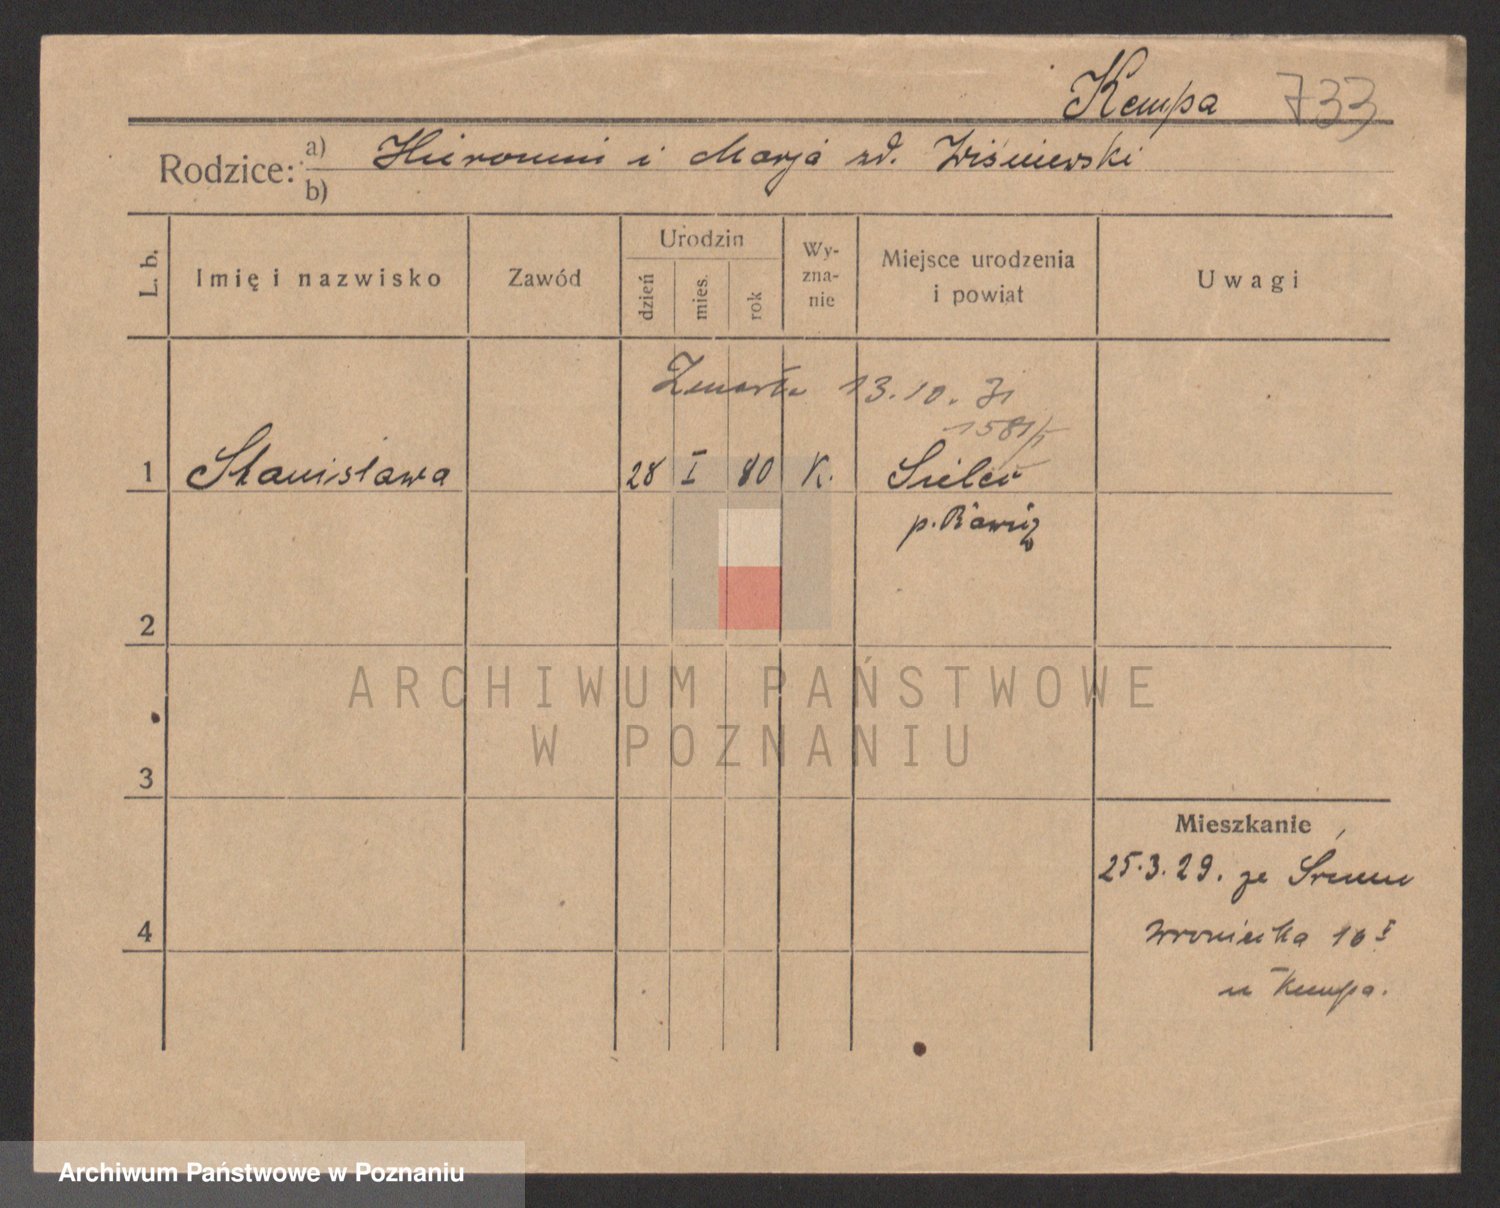 Kempa 733
Rodzice: a) Hieronim i Marja zd. Wiśniewski
b)
L. b. Imię i nazwisko Zawód Urodzin dzień mies. rok Wyznanie Miejsce urodzenia i powiat Uwagi
Zmarła 13.10.31
1581/I
1 Stanisława 28 I 80 K. Sielec
p. Rawicz
2
ARCHIWUM PAŃSTWOWE
W POZNANIU
3
Mieszkanie
25.3.29. ze Śremu
4 Wroniecka 10 I
u Kempa.
Archiwum Państwowe w Poznaniu